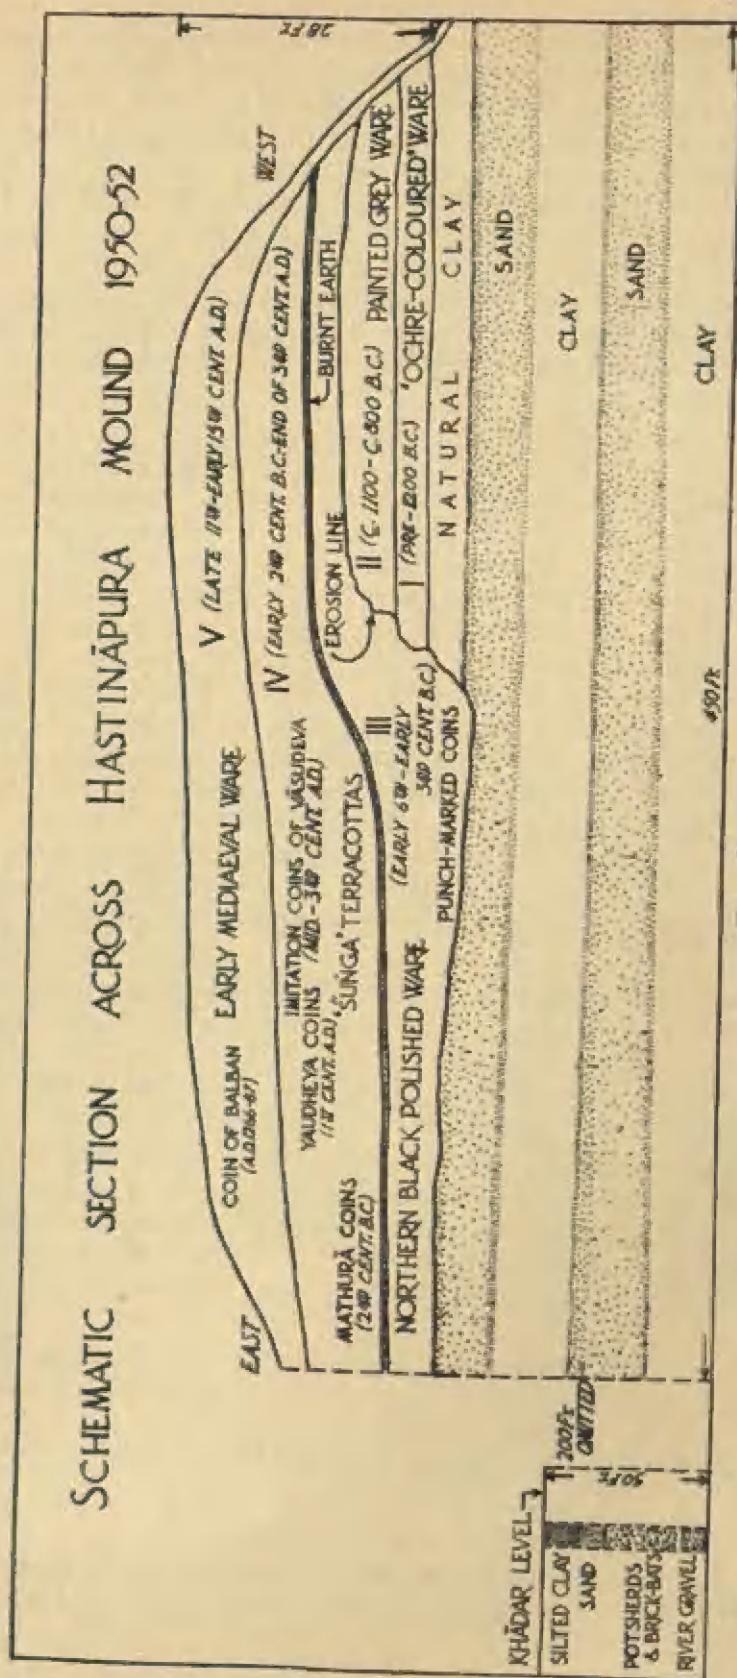 SCHEMATIC SECTION ACROSS HASTINĀPURA MOUND 1950-52
EAST
WEST
28 FT
COIN OF BALBAN
(A.D.1266-87)
EARLY MEDIAEVAL WARE
V (LATE 11TH-EARLY 15TH CENT A.D.)
IMITATION COINS OF VĀSUDEVA
(MID.-3RD CENT A.D.)
IV (EARLY 2ND CENT B.C.-END OF 3RD CENT A.D.)
YAUDHEYA COINS
'ŚUṄGA' TERRACOTTAS
MATHURĀ COINS
(2ND CENT. B.C.)
BURNT EARTH
EROSION LINE
NORTHERN BLACK POLISHED WARE
III
(EARLY 6TH-EARLY
3RD CENT B.C.)
PUNCH-MARKED COINS
II (C-1100-C-800 B.C.) PAINTED GREY WARE
I (PRE-1200 B.C.) 'OCHRE-COLOURED' WARE
NATURAL CLAY
SAND
CLAY
SAND
CLAY
450 Ft
200 Ft
OMITTED
KHĀDAR LEVEL
SILTED CLAY
SAND
POTSHERDS
& BRICK-BATS
RIVER GRAVEL